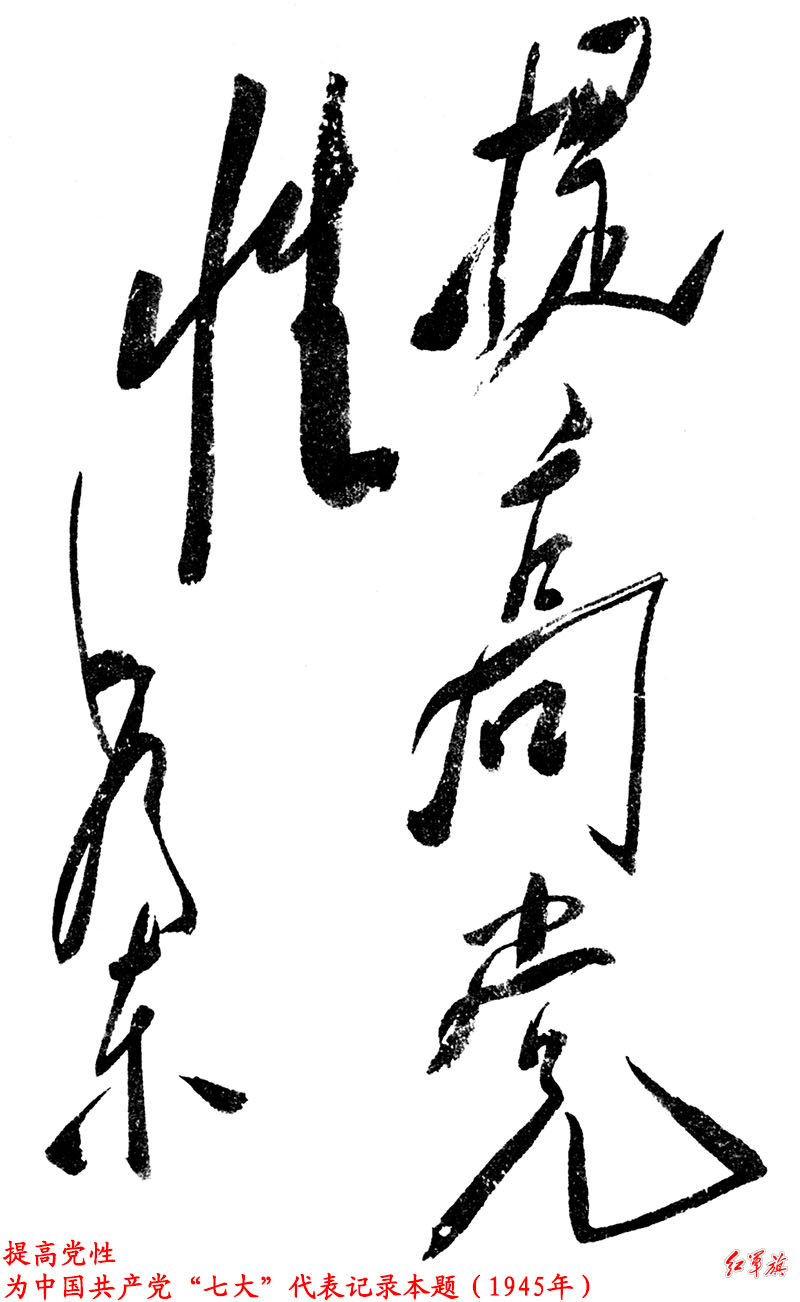 提高党
性
毛泽东
提高党性
为中国共产党“七大”代表记录本题（1945年）
红军旗